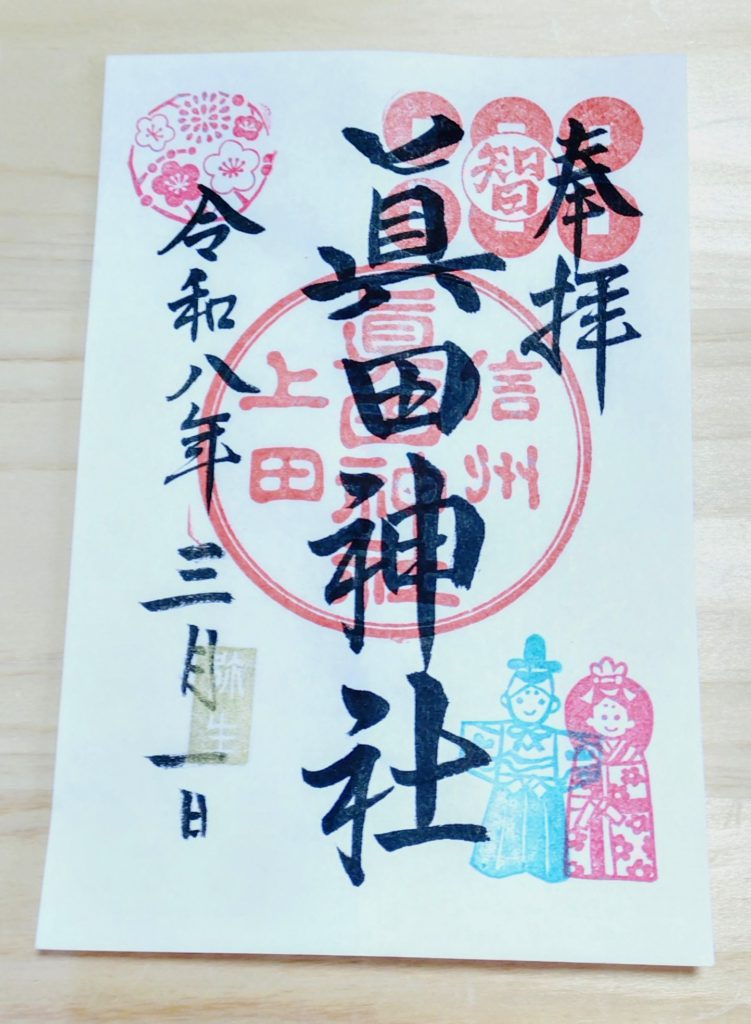 奉拝
智
眞田神社
信州
眞田神社
上田
令和八年三月一日
弥生